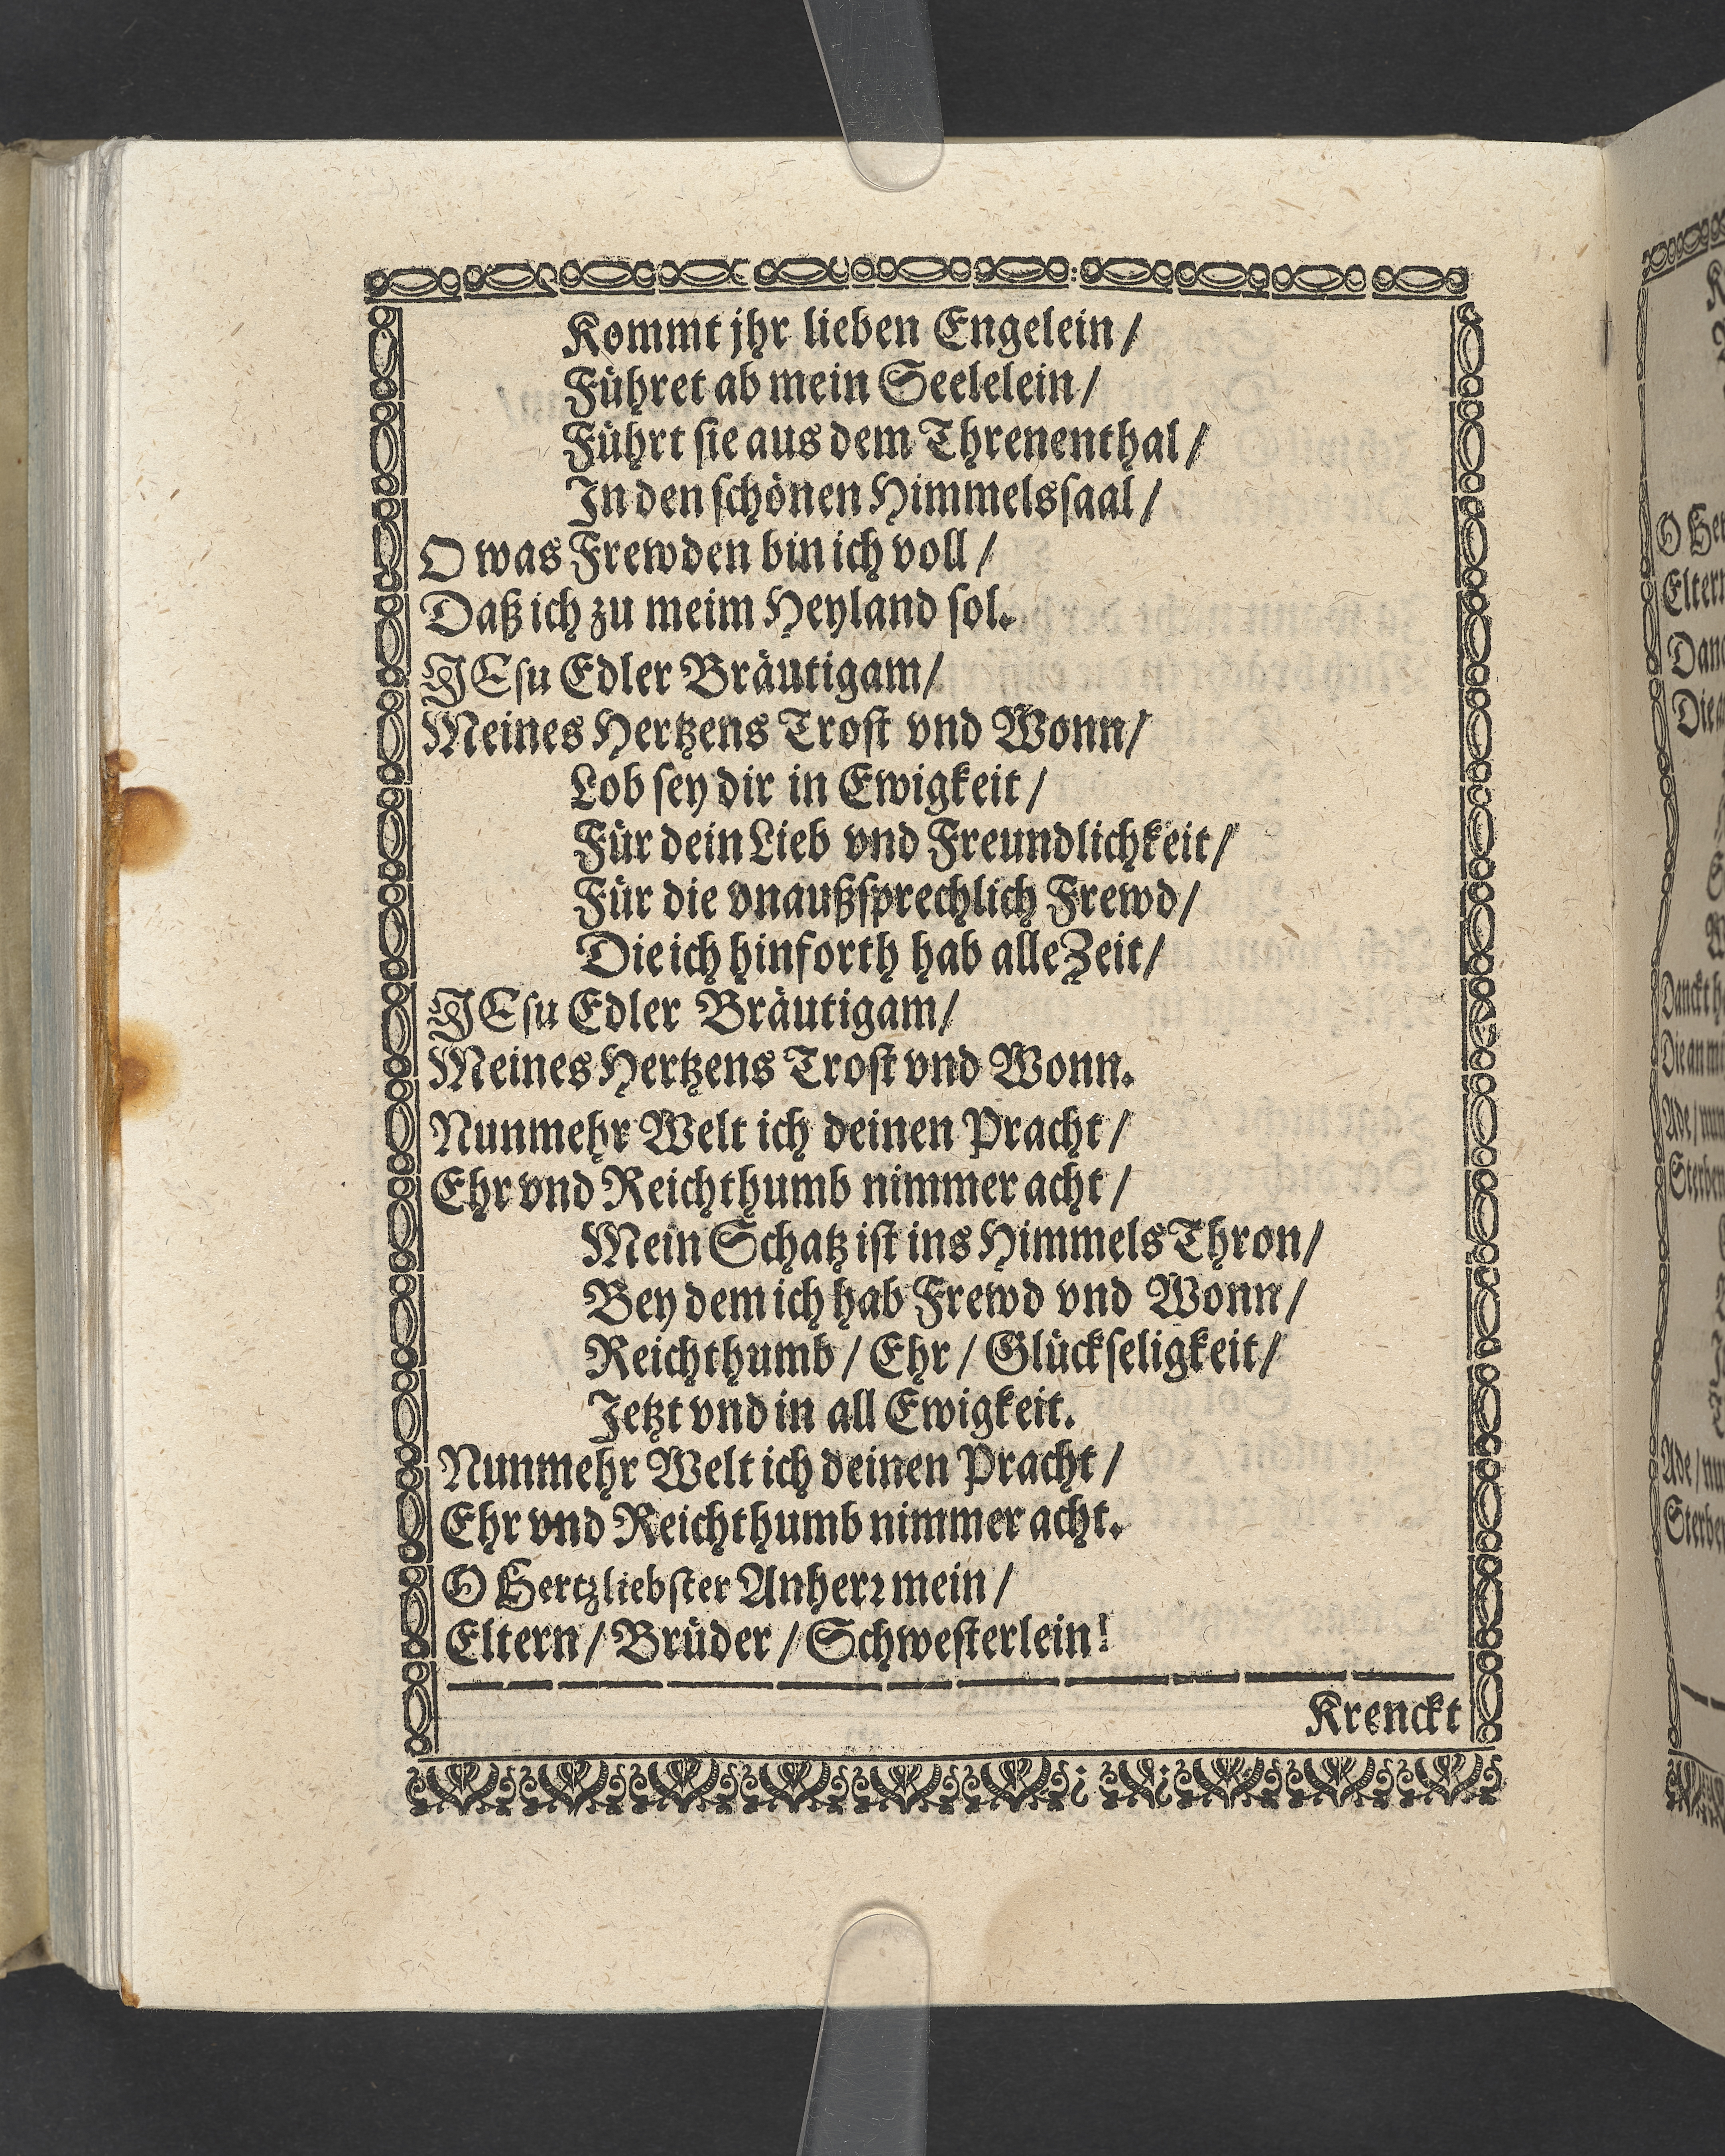 Kommt jhr lieben Engelein /
Führet ab mein Seelelein /
Führt ſie aus dem Threnenthal /
In den ſchönen Himmelsſaal /
O was Frewden bin ich voll /
Daß ich zu meim Heyland ſol.
JEſu Edler Bräutigam /
Meines Hertzens Troſt vnd Wonn /
Lob ſey dir in Ewigkeit /
Für dein Lieb vnd Freundlichkeit /
Für die vnaußſprechlich Frewd /
Die ich hinforth hab alle Zeit /
JEſu Edler Bräutigam /
Meines Hertzens Troſt vnd Wonn.
Nunmehr Welt ich deinen Pracht /
Ehr vnd Reichthumb nimmer acht /
Mein Schatz iſt ins Himmels Thron /
Bey dem ich hab Frewd vnd Wonn /
Reichthumb / Ehr / Glückſeligkeit /
Jetzt vnd in all Ewigkeit.
Nunmehr Welt ich deinen Pracht /
Ehr vnd Reichthumb nimmer acht.
O Hertzliebſter Anherꝛ mein /
Eltern / Brüder / Schweſterlein!
Krenckt
O
Elter
Danckt
Die an
Ade / nun
Ade / nu